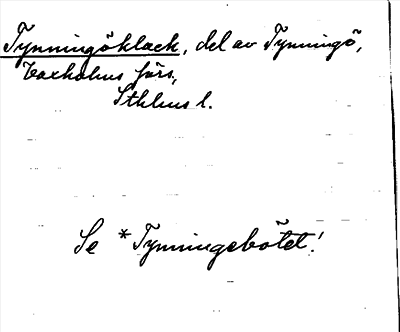 Tynningöklack, del av Tynningö,
Vaxholms förs,
Sthlms l.
Se *Tynningebötet!